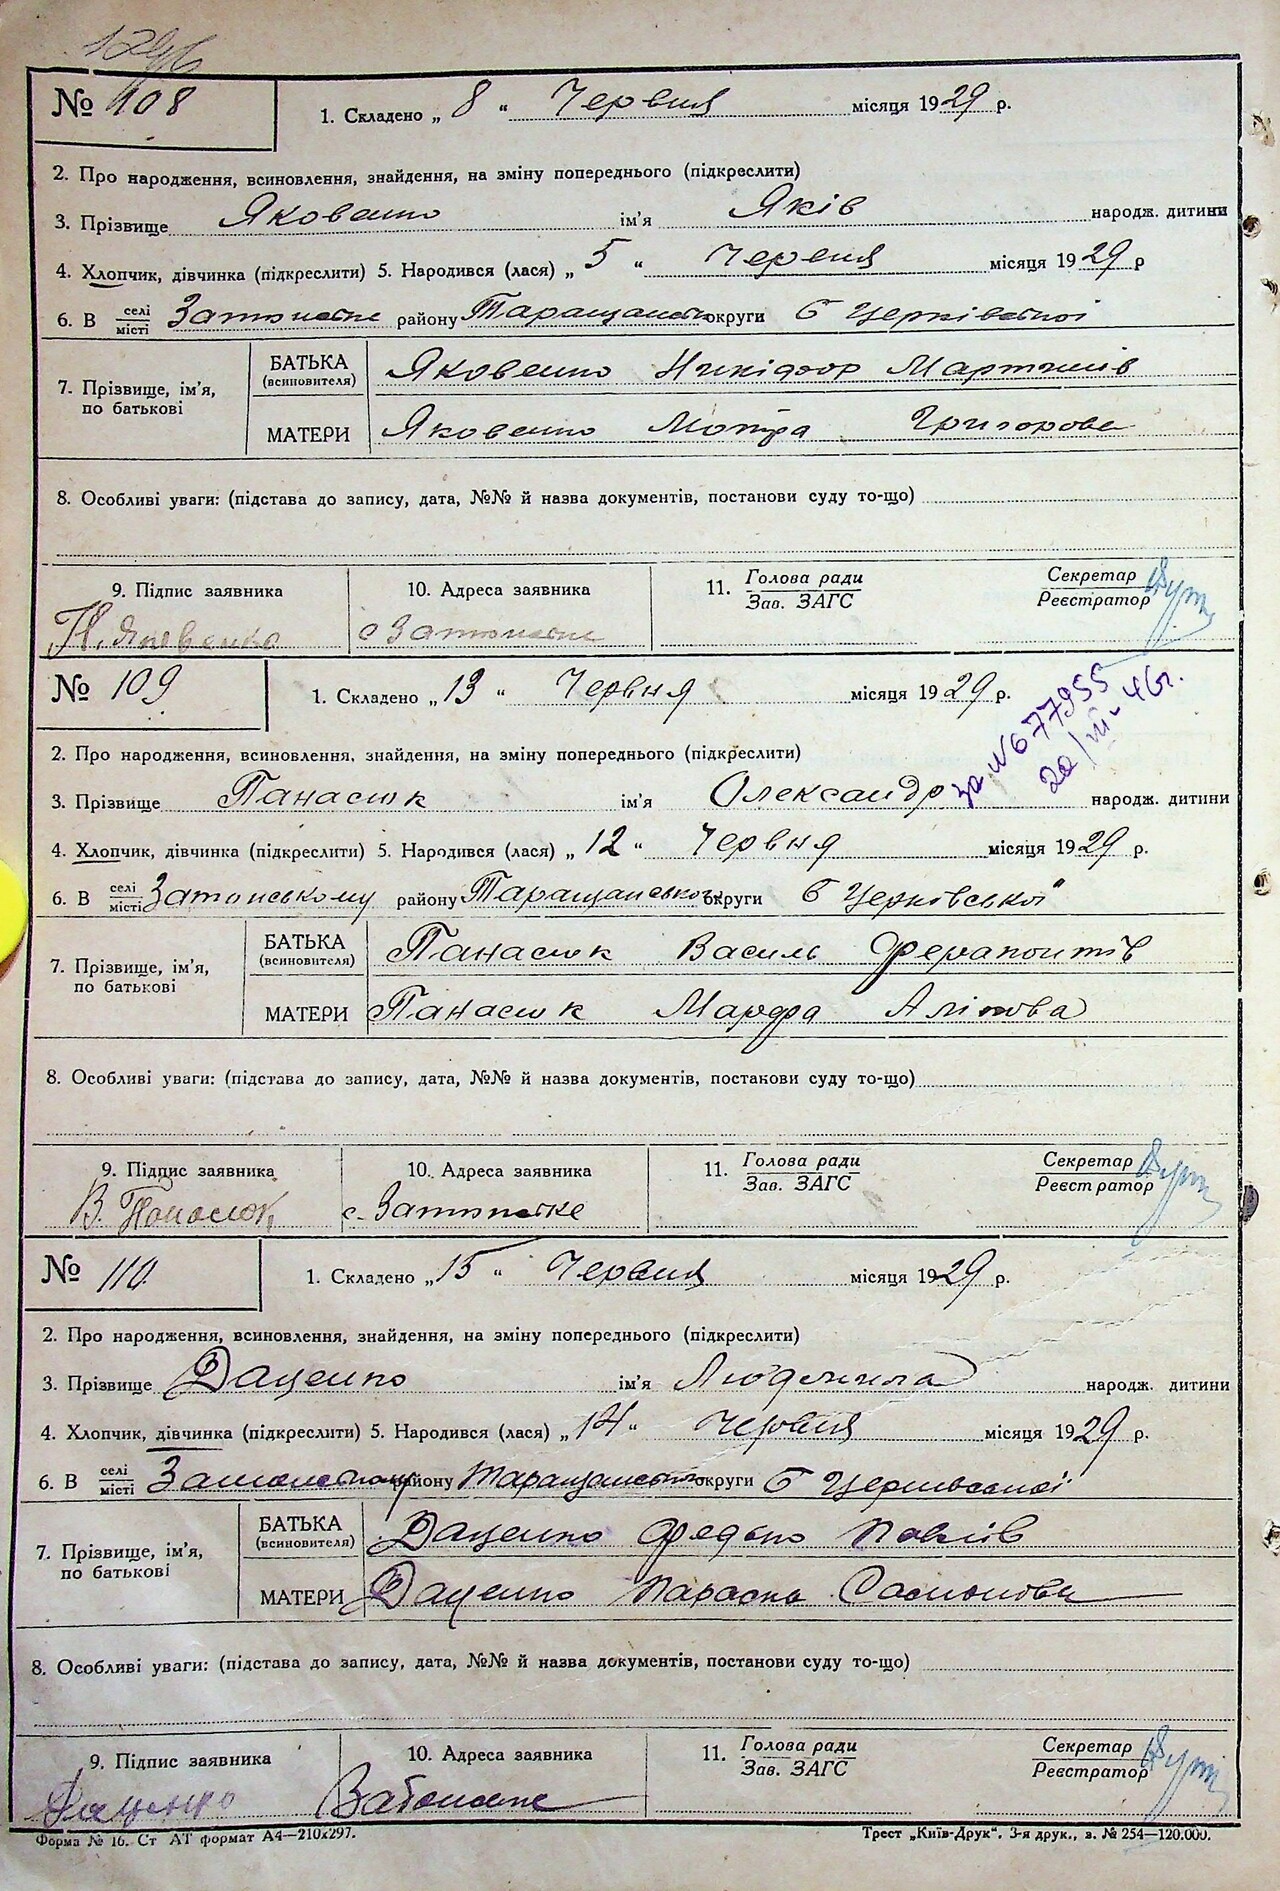 № 108 1. Складено „ 8 “ Червня місяця 1929 р.
2. Про народження, всиновлення, знайдення, на зміну попереднього (підкреслити)
3. Прізвище Яковенко ім'я Яків народж. дитини
4. Хлопчик, дівчинка (підкреслити) 5. Народився (лася) „ 5 “ Червня місяця 1929 р
6. В селі/місті району Таращанськ округи Б Церківської
7. Прізвище, ім'я, по батькові
БАТЬКА (всиновителя) Яковенко Никіфор Мартинів
МАТЕРИ Яковенко Мотря Григорова
8. Особливі уваги: (підстава до запису, дата, №№ й назва документів, постанови суду то-що)
9. Підпис заявника 10. Адреса заявника 11. Голова ради/Зав. ЗАГС Секретар/Реєстратор
Н. Яковенко с
№ 109 1. Складено „ 13 “ Червня місяця 1929 р.
за №677955
20/III-46г.
2. Про народження, всиновлення, знайдення, на зміну попереднього (підкреслити)
3. Прізвище Панасюк ім'я Олександр народж. дитини
4. Хлопчик, дівчинка (підкреслити) 5. Народився (лася) „ 12 “ Червня місяця 1929 р.
6. В селі/місті Затонському району Таращанського округи Б Церковської
7. Прізвище, ім'я, по батькові
БАТЬКА (всиновителя) Панасюк Василь Ферапонтів
МАТЕРИ Панасюк Марфа
8. Особливі уваги: (підстава до запису, дата, №№ й назва документів, постанови суду то-що)
9. Підпис заявника 10. Адреса заявника 11. Голова ради/Зав. ЗАГС Секретар/Реєстратор
В. Панасюк с.
№ 110 1. Складено „ 15 “ Червня місяця 1929 р.
2. Про народження, всиновлення, знайдення, на зміну попереднього (підкреслити)
3. Прізвище Даценко ім'я Людмила народж. дитини
4. Хлопчик, дівчинка (підкреслити) 5. Народився (лася) „ 14 “ Червня місяця 1929 р.
6. В селі/місті Затонському району Таращанського округи Б Церківської
7. Прізвище, ім'я, по батькові
БАТЬКА (всиновителя) Даценко Федько Павлів
МАТЕРИ Даценко Параска
8. Особливі уваги: (підстава до запису, дата, №№ й назва документів, постанови суду то-що)
9. Підпис заявника 10. Адреса заявника 11. Голова ради/Зав. ЗАГС Секретар/Реєстратор
Даценко
Форма № 16. Ст АТ формат А4—210х297. Трест „Київ-Друк“. 3-я друк., з. № 254—120.000.